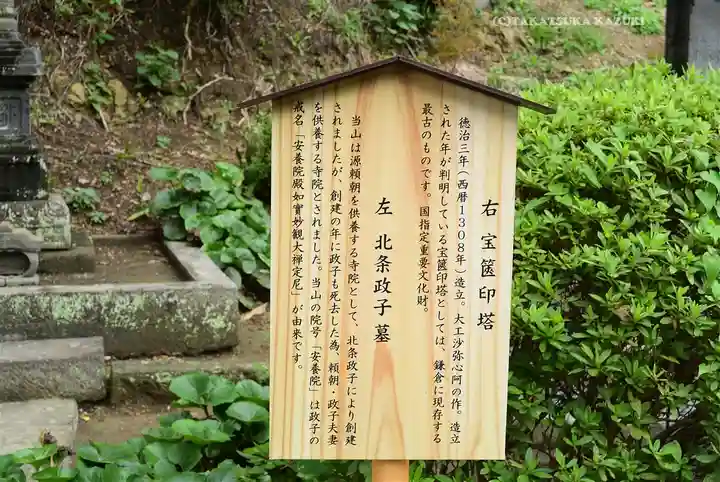 (C)TAKATSUKA KAZUKI
右 宝篋印塔
徳治三年(西暦1308年)造立。大工沙弥心阿の作。造立
された年が判明している宝篋印塔としては、鎌倉に現存する
最古のものです。国指定重要文化財。
左 北条政子墓
当山は源頼朝を供養する寺院として、北条政子により創建
されましたが、創建の年に政子も死去した為、頼朝・政子夫妻
を供養する寺院とされました。当山の院号「安養院」は政子の
戒名「安養院殿如實妙観大禅定尼」が由来です。